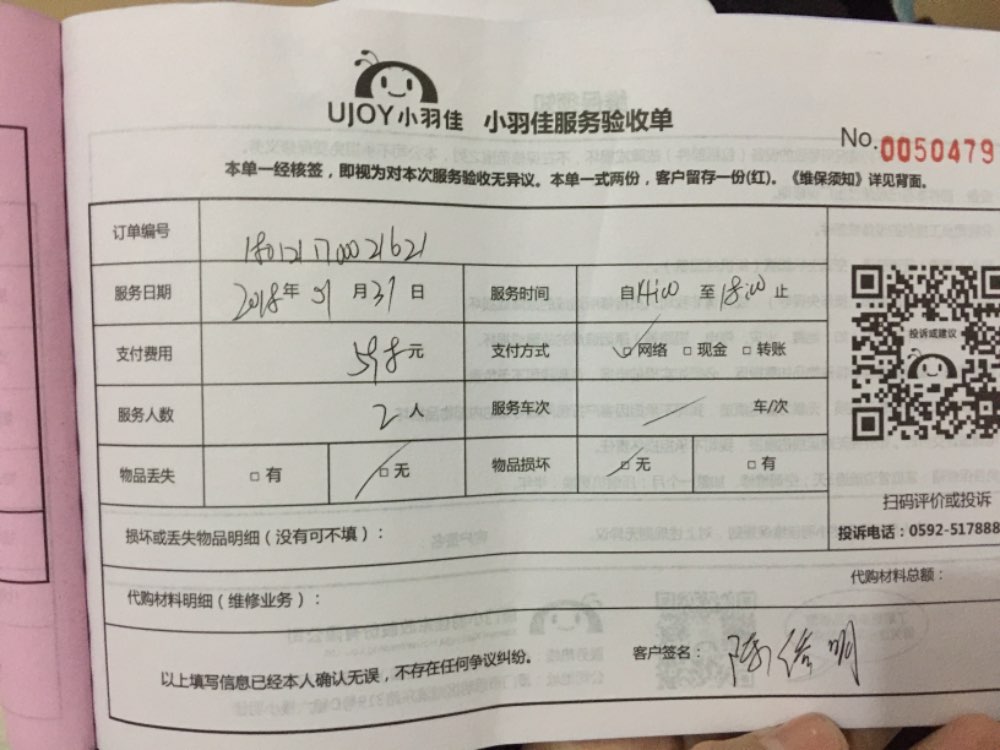 UJOY小羽佳 小羽佳服务验收单
No.0050479
本单一经核签，即视为对本次服务验收无异议。本单一式两份，客户留存一份(红)。《维保须知》详见背面。
订单编号 18012117000021621
服务日期 2018年 月31日 服务时间 自14:00至18:00止
支付费用 598元 支付方式 □网络 □现金 □转账
服务人数 2人 服务车次 车/次
物品丢失 □有 □无 物品损坏 □无 □有
投诉或建议
扫码评价或投诉
投诉电话：0592-517888
损坏或丢失物品明细（没有可不填）：
代购材料明细（维修业务）：
代购材料总额：
以上填写信息已经本人确认无误，不存在任何争议纠纷。
客户签名：陈信明